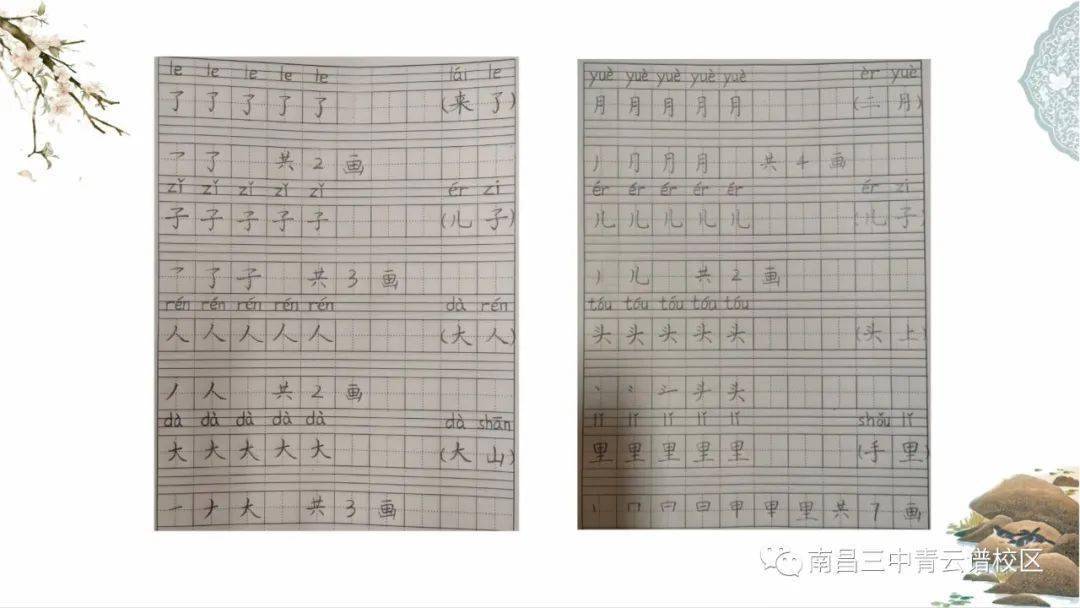 le le le le le lái le
了 了 了 了 了 (来 了)
乛 了 共 2 画
zǐ zǐ zǐ zǐ zǐ ér zi
子 子 子 子 子 (儿 子)
乛 了 子 共 3 画
rén rén rén rén rén dà rén
人 人 人 人 人 (大 人)
丿 人 共 2 画
dà dà dà dà dà dà shān
大 大 大 大 大 (大 山)
一 ナ 大 共 3 画
yuè yuè yuè yuè yuè èr yuè
月 月 月 月 月 (二 月)
丿 月 月 月 共 4 画
ér ér ér ér ér ér zi
儿 儿 儿 儿 儿 (儿 子)
丿 儿 共 2 画
tóu tóu tóu tóu tóu
头 头 头 头 头 (头 上)
头
lǐ lǐ lǐ lǐ lǐ shǒu lǐ
里 里 里 里 里 (手 里)
丨 冂 曰 曰 甲 甲 里 共 7 画
南昌三中青云谱校区